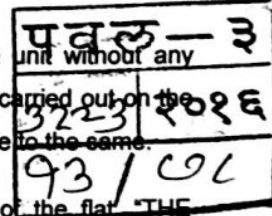 पवल - ३
unit without any
carried out on the
३२२३ २०१६
e to the same.
१३ / ७८
of the flat "THE